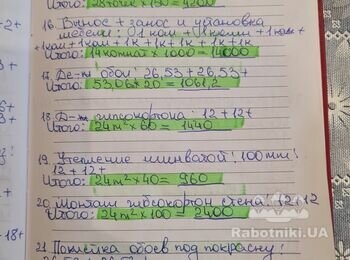 Итого: 28 точек х 150 = 4200
16. Вынос + занос и установка
мебели: 01 ком + 01 кухни + 1 ком +
+ 1 ком + 1 ком + 1к + 1к + 1к + 1к + 1к
Итого: 14 комнат х 1000 = 14000
17. Де-ж обои: 26,53 + 26,53 +
Итого: 53,06 х 20 = 1061,2
18. Д-ж гипсокартона: 12 + 12 +
Итого: 24 м² х 60 = 1440
19. Утепление минватой! 100 mm!
12 + 12 +
Итого: 24 м² х 40 = 960
20. Монтаж гибсокартон стена: 12+12
Итого: 24 м² х 100 = 2400
21. Поклейка обоев под покраску:
-2+
- 18+
Rabotniki.UA